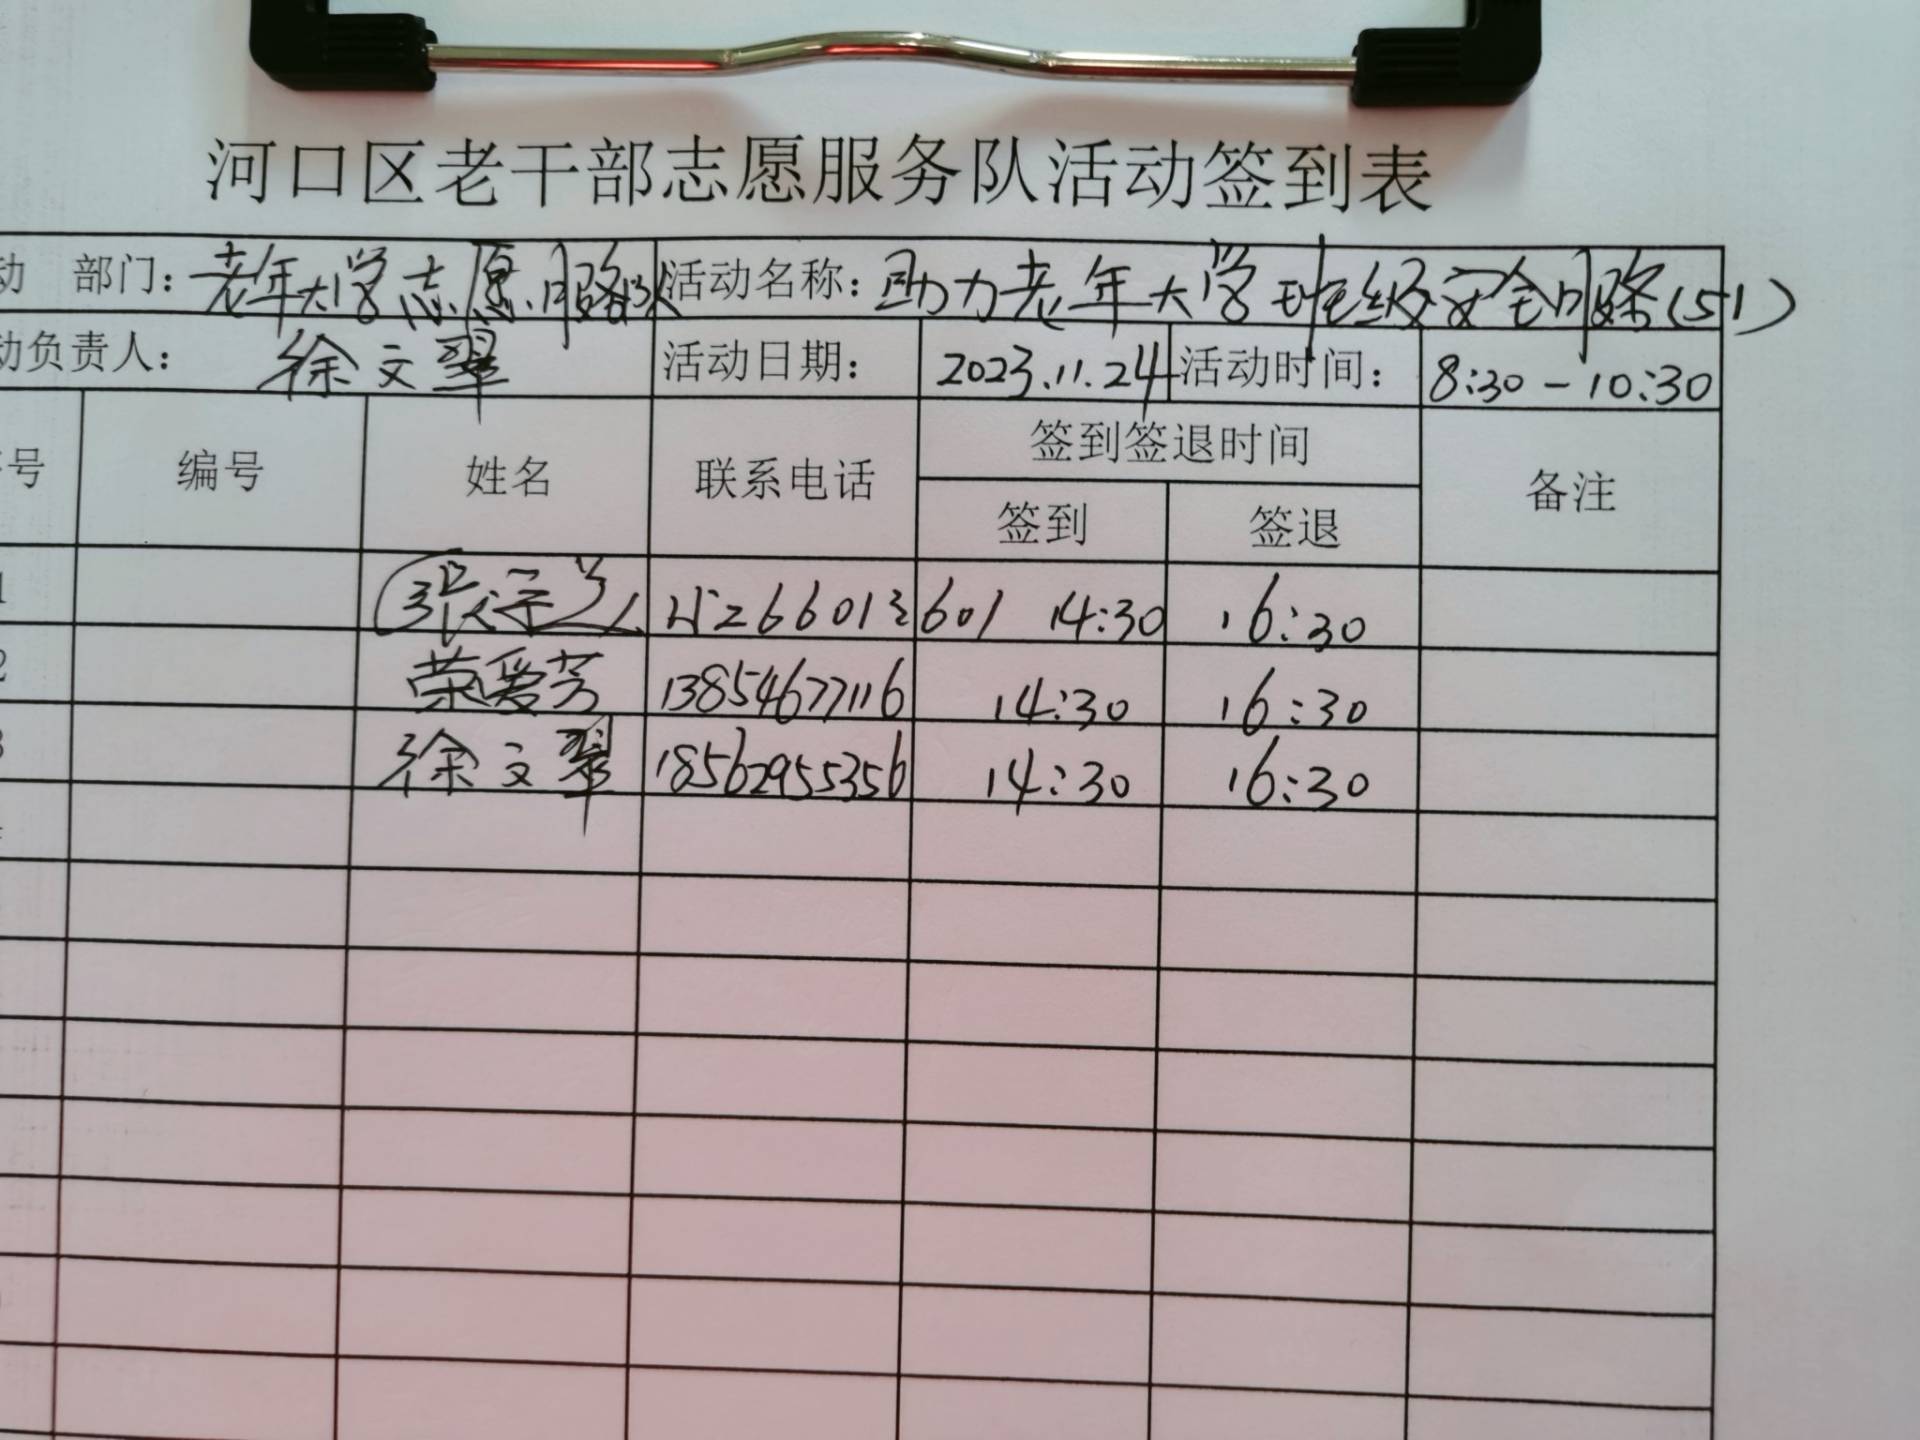 河口区老干部志愿服务队活动签到表
动 部门：老年大学志愿服务队 活动名称：助力老年大学班级安全服务（51）
动负责人：徐文翠 活动日期：2023.11.24 活动时间：8:30－10:30
号 编号 姓名 联系电话 签到签退时间 备注
签到 签退
1 14:30 16:30
2 荣爱芳 13854677116 14:30 16:30
3 徐文翠 18562955356 14:30 16:30